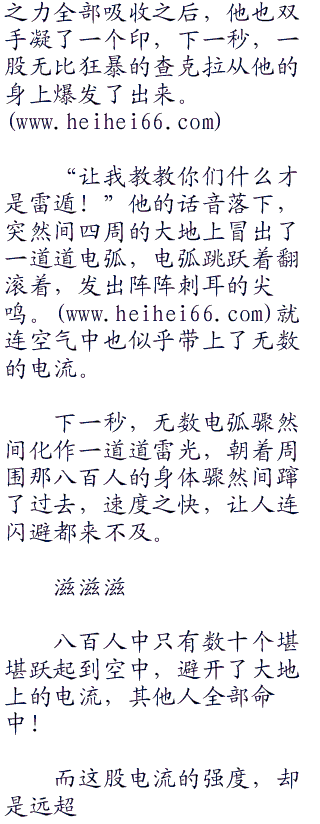 之力全部吸收之后，他也双
手凝了一个印，下一秒，一
股无比狂暴的查克拉从他的
身上爆发了出来。
(www.heihei66.com)
“让我教教你们什么才
是雷遁！”他的话音落下，
突然间四周的大地上冒出了
一道道电弧，电弧跳跃着翻
滚着，发出阵阵刺耳的尖
鸣。(www.heihei66.com)就
连空气中也似乎带上了无数
的电流。
下一秒，无数电弧骤然
间化作一道道雷光，朝着周
围那八百人的身体骤然间蹿
了过去，速度之快，让人连
闪避都来不及。
滋滋滋
八百人中只有数十个堪
堪跃起到空中，避开了大地
上的电流，其他人全部命
中！
而这股电流的强度，却
是远超